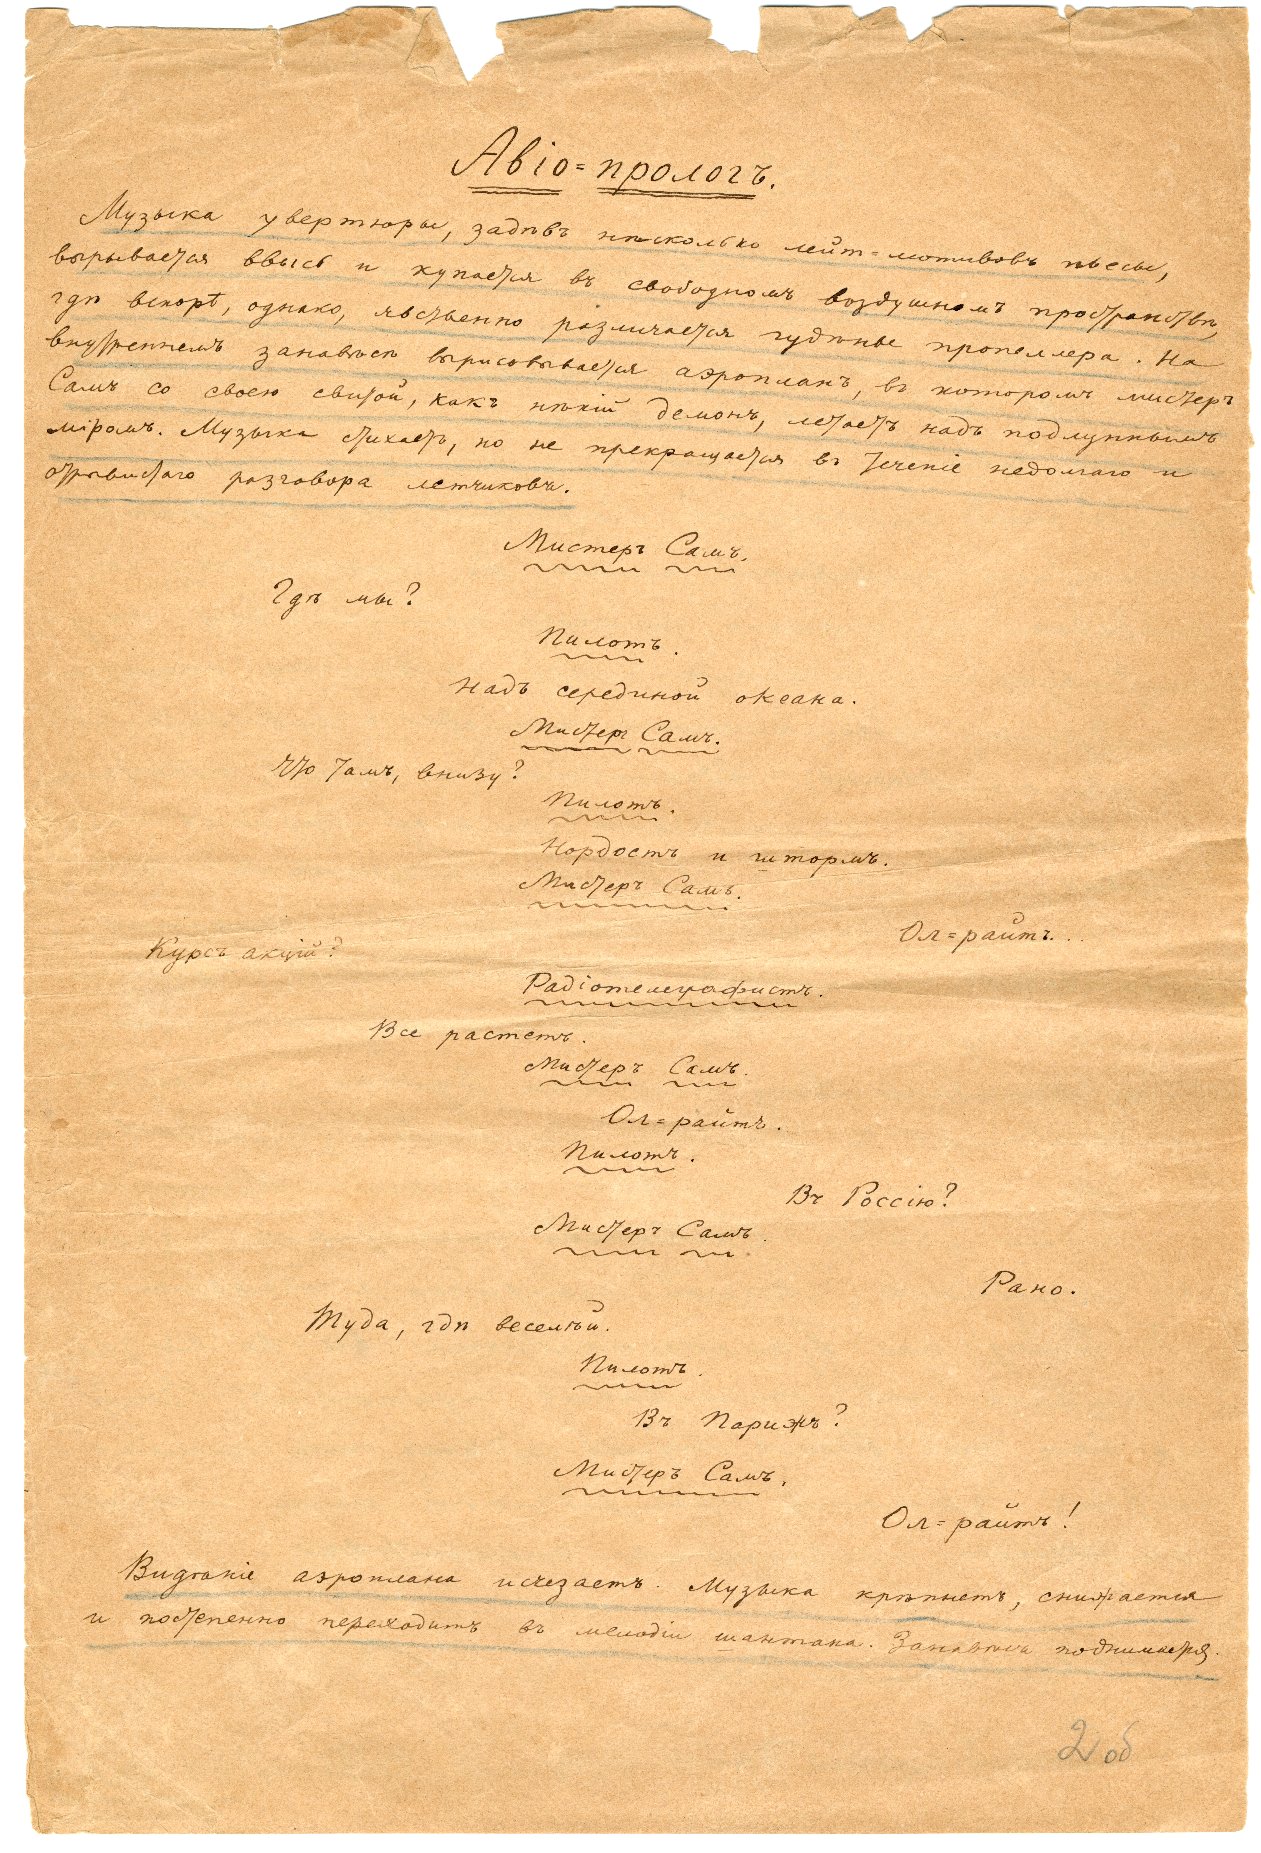 Авіо=прологъ.
Музыка увертюры, задѣвъ нѣсколько лейт=мотивовъ пьесы,
вырывается ввысь и купается въ свободномъ воздушномъ пространствѣ,
гдѣ вскорѣ, однако, явственно различается гудѣнье пропеллера. На
внутреннемъ занавѣсѣ вырисовывается аэропланъ, въ которомъ мистеръ
Самъ со своею свитой, какъ нѣкій демонъ, летаетъ надъ подлуннымъ
міромъ. Музыка стихаетъ, но не прекращается въ теченіе недолгаго и
отрывистаго разговора летчиковъ.
Мистеръ Самъ.
Гдѣ мы?
Пилотъ.
Надъ серединой океана.
Мистеръ Самъ.
Что тамъ, внизу?
Пилотъ.
Нордостъ и штормъ.
Мистеръ Самъ.
Ол=райтъ...
Курсъ акцій?
Радіотелеграфистъ.
Все растетъ.
Мистеръ Самъ.
Ол=райтъ.
Пилотъ.
Въ Россію?
Мистеръ Самъ.
Рано.
Туда, гдѣ веселѣй.
Пилотъ.
Въ Парижъ?
Мистеръ Самъ.
Ол=райтъ!
Видѣніе аэроплана исчезаетъ. Музыка крѣпнетъ, снижается
и постепенно переходитъ въ мелодіи шантана. Занавѣсъ поднимается.
2 об